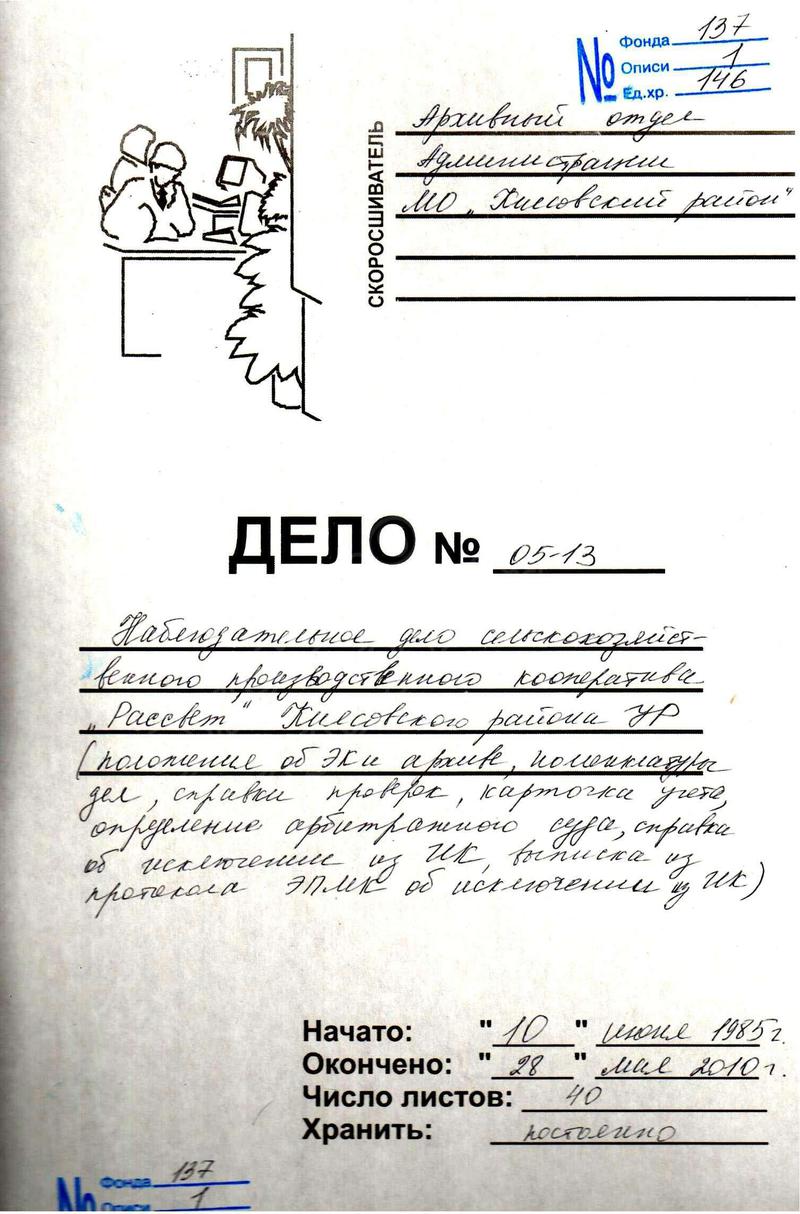 № Фонда 137
Описи 1
Ед.хр. 146
СКОРОСШИВАТЕЛЬ
Архивный отдел
Администрации
МО "Киясовский район"
ДЕЛО № 05-13
Наблюдательное дело сельскохозяйст-
венного производственного кооператива
"Рассвет" Киясовского района УР
(положение об ЭК и архиве, номенклатуры
дел, справки проверок, карточка учета,
определение арбитражного суда, справка
об исключении из ИК, выписка из
протокола ЭПМК об исключении из ИК)
Начато: "10" июня 1985г.
Окончено: "28" мая 2010г.
Число листов: 40
Хранить: постоянно
№ Фонда 137
Описи 1